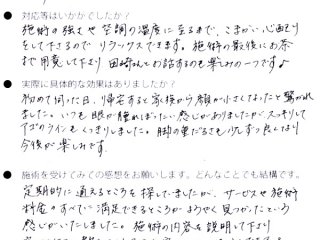 ● 対応等はいかがでしたか？
施術の強さや空調の温度に至るまで、こまかい心配り
をして下さるのでリラックスできます。施術の最後にお茶
まで用意して下り 田崎さんとお話するのも楽しみの一つですよ♪
● 実際に具体的な効果はありましたか？
初めて伺った日、帰宅すると家族から顔が小さくなったと驚かれ
ました。いつも眼が腫れぼったい感じがありましたがスッキリして
アゴのラインもくっきりしました。脚の重だるさも少しずつ良くなり
今後が楽しみです。
● 施術を受けてみての感想をお願いします。どんなことでも結構です。
定期的に通えるところを探していましたが、サービスや施術
料金のすべてに満足できるところがようやく見つかったという
感じがいたしました。施術の内容も説明して下り